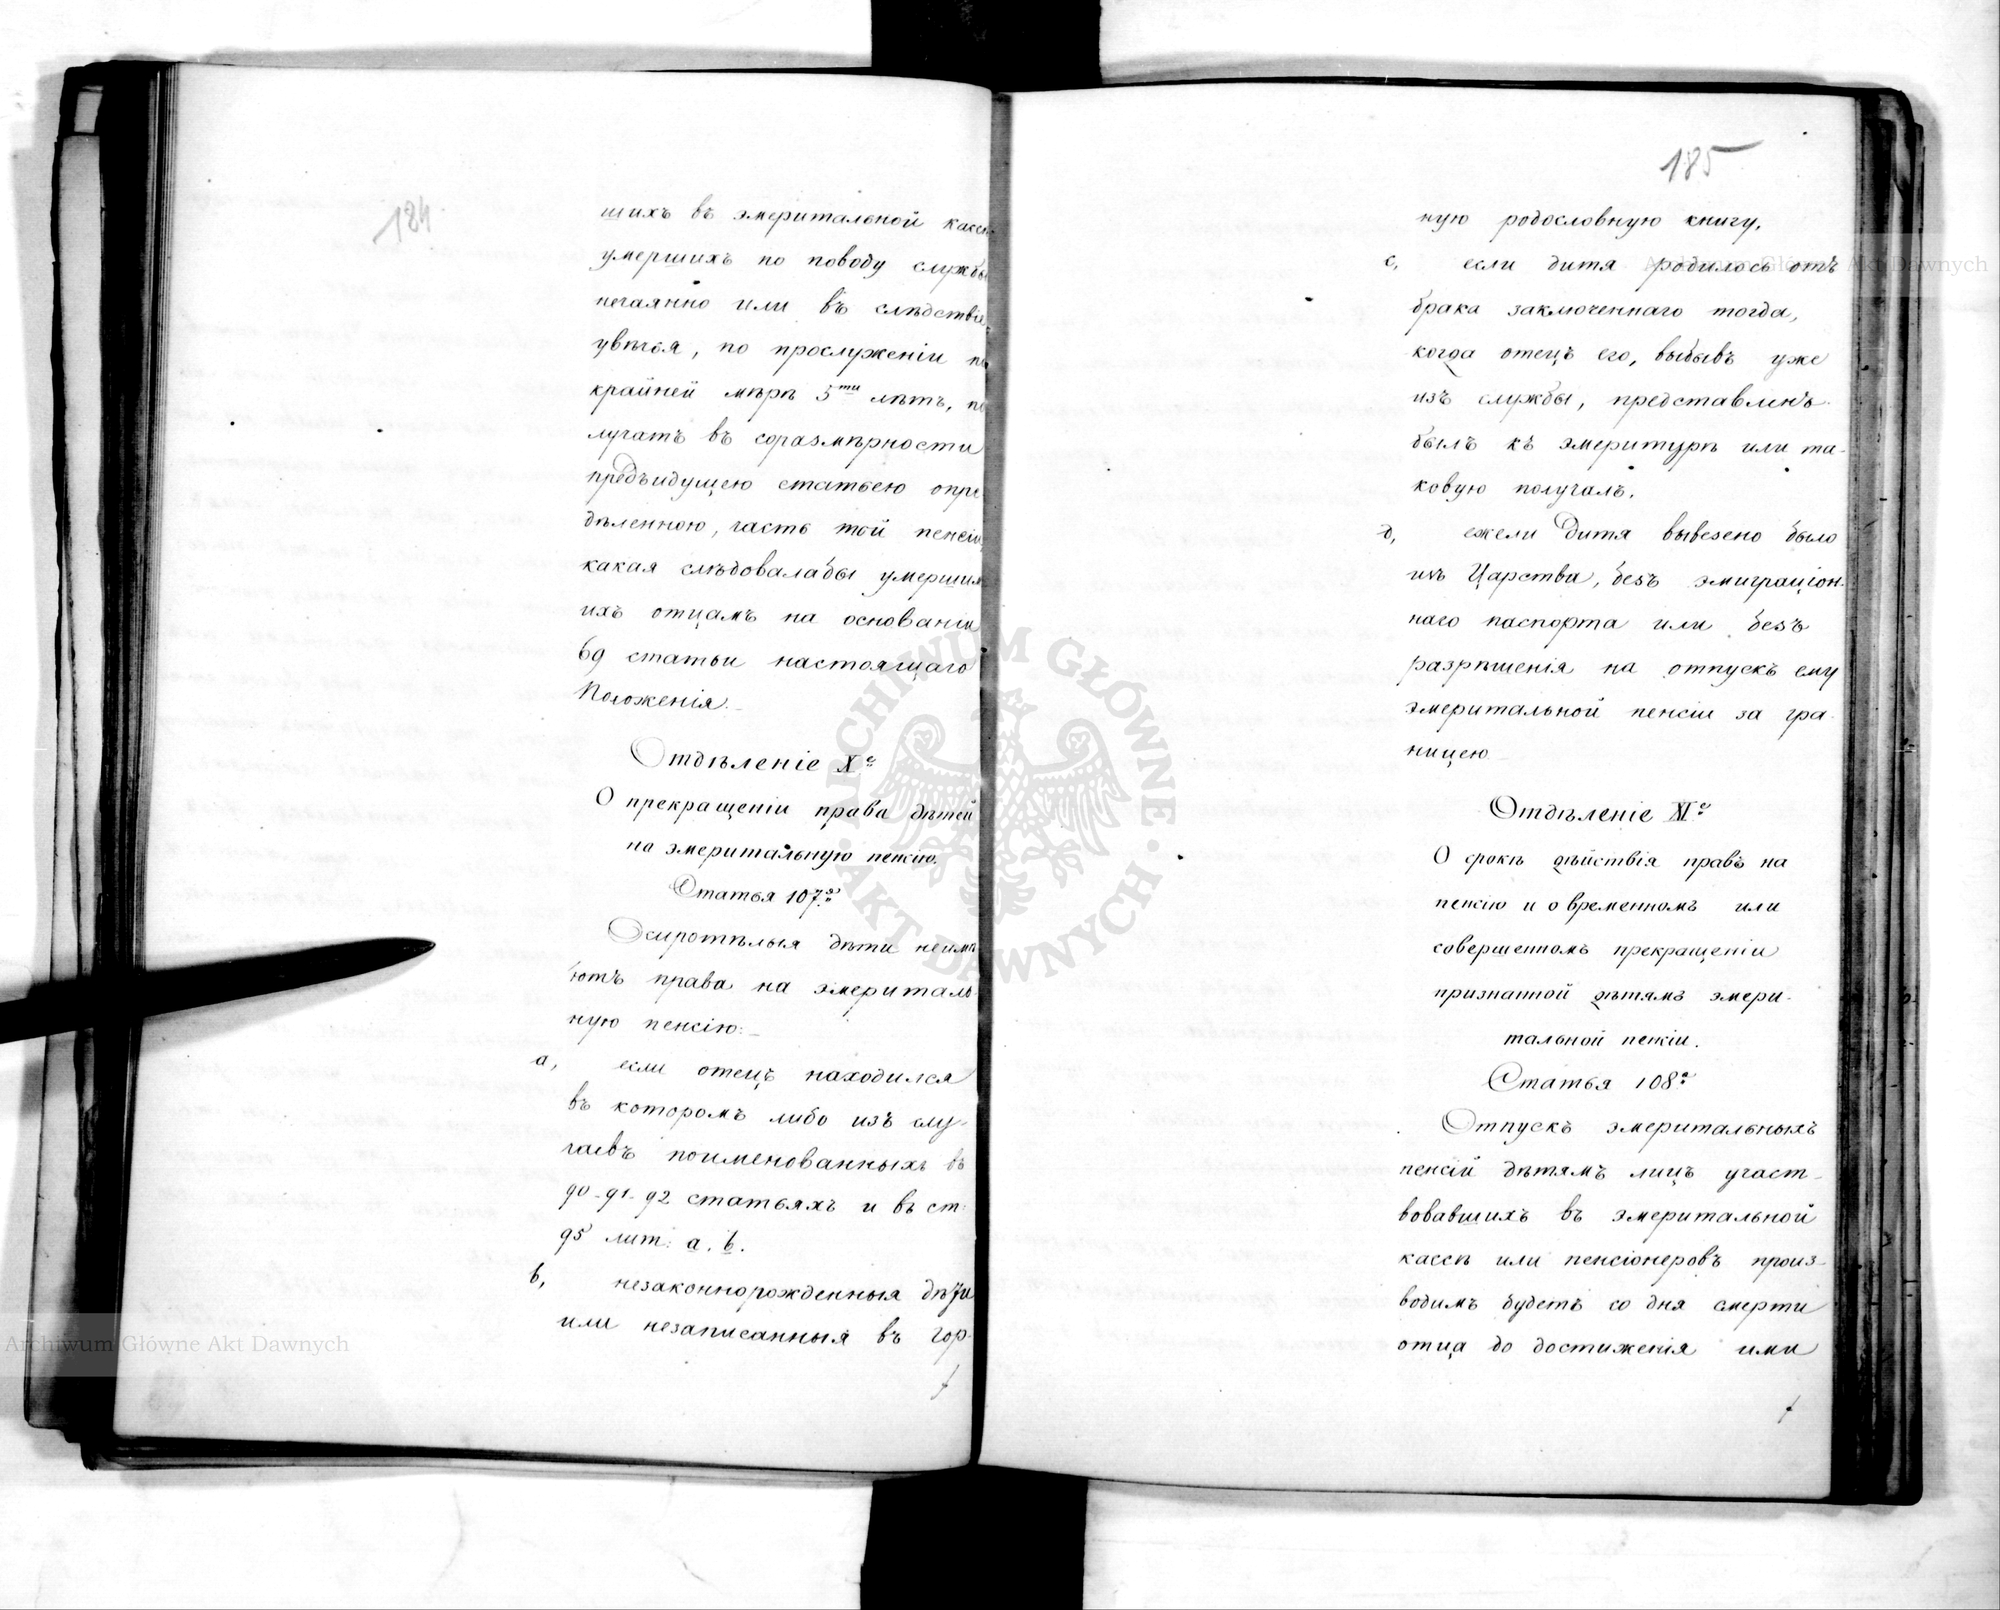 184
шихъ въ эмеритальной кассѣ
умершихъ по поводу службы
нечаянно или въ слѣдствіе
увѣчья, по прослуженіи по
крайней мѣрѣ 5ти лѣтъ, по
лучатъ въ соразмѣрности
предъидущею статьею опре
дѣленною, часть той пенсіи
какая слѣдовалабы умершимъ
ихъ отцамъ на основаніи
69 статьи настоящаго
Положенія.
Отдѣленіе Xе
О прекращеніи права дѣтей
на эмеритальную пенсію.
Статья 107а
Осиротѣлыя дѣти неимѣ
ютъ права на эмериталь
ную пенсію:
a, если отецъ находился
въ которомъ либо изъ слу-
чаевъ поименованныхъ въ
90-91-92 статьяхъ и въ ст:
95 лит: a. b.
b, незаконнорожденныя дѣти
или незаписанныя въ гор-
185
ную родословную книгу.
c, если дитя родилось отъ
брака заключеннаго тогда,
когда отецъ его, выбывъ уже
изъ службы, представленъ
былъ къ эмеритурѣ или та-
ковую получалъ.
d, ежели дитя вывезено было
изъ Царства, безъ эмиграціон-
наго паспорта или безъ
разрѣшенія на отпускъ ему
эмеритальной пенсіи за гра-
ницею
Отдѣленіе XIе
О срокѣ дѣйствія правъ на
пенсію и о временномъ или
совершенномъ прекращеніи
признанной дѣтямъ эмери-
тальной пенсіи.
Статья 108а
Отпускъ эмеритальныхъ
пенсій дѣтямъ лицъ участ-
вовавшихъ въ эмеритальной
кассѣ или пенсіонеровъ произ-
водимъ будетъ со дня смерти
отца до достиженія ими
ARCHIWUM GŁÓWNE AKT DAWNYCH
Archiwum Główne Akt Dawnych
Archiwum Główne Akt Dawnych